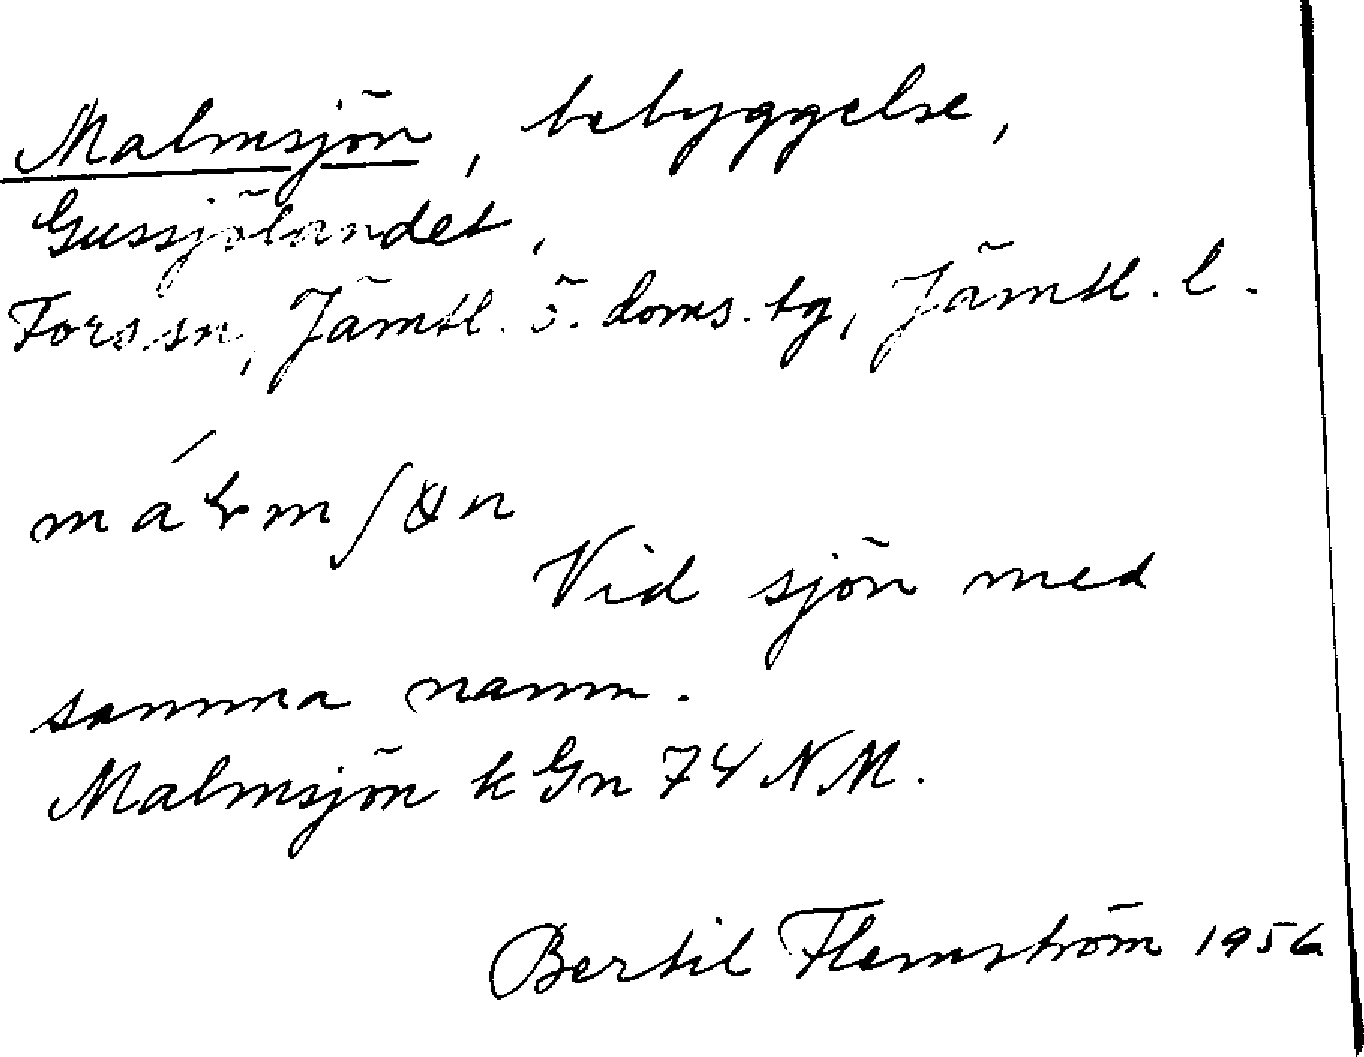 Malmsjön, bebyggelse,
Gussjölandet,
Fors sn, Jämtl. ö. doms. tg, Jämtl. l.
Vid sjön med
samma namn.
Malmsjön k Gn 74 NM.
Bertil Flemström 1956